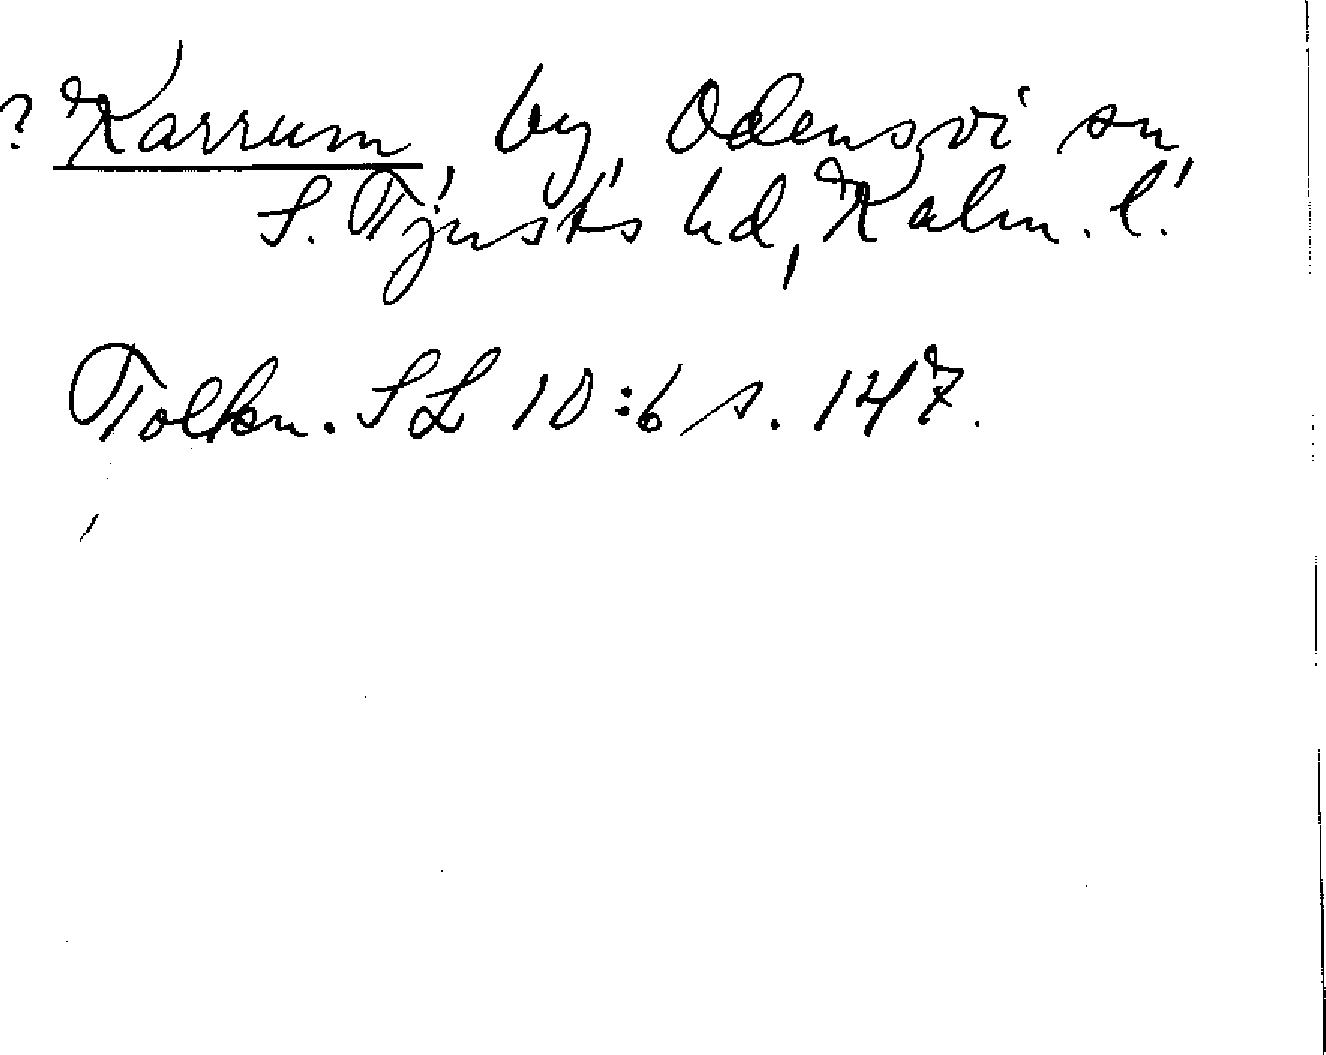 ? Karrum, by, Odensvi sn,
S. Tjusts hd, Kalm. l.
Tolkn. SL 10:6 s. 147.